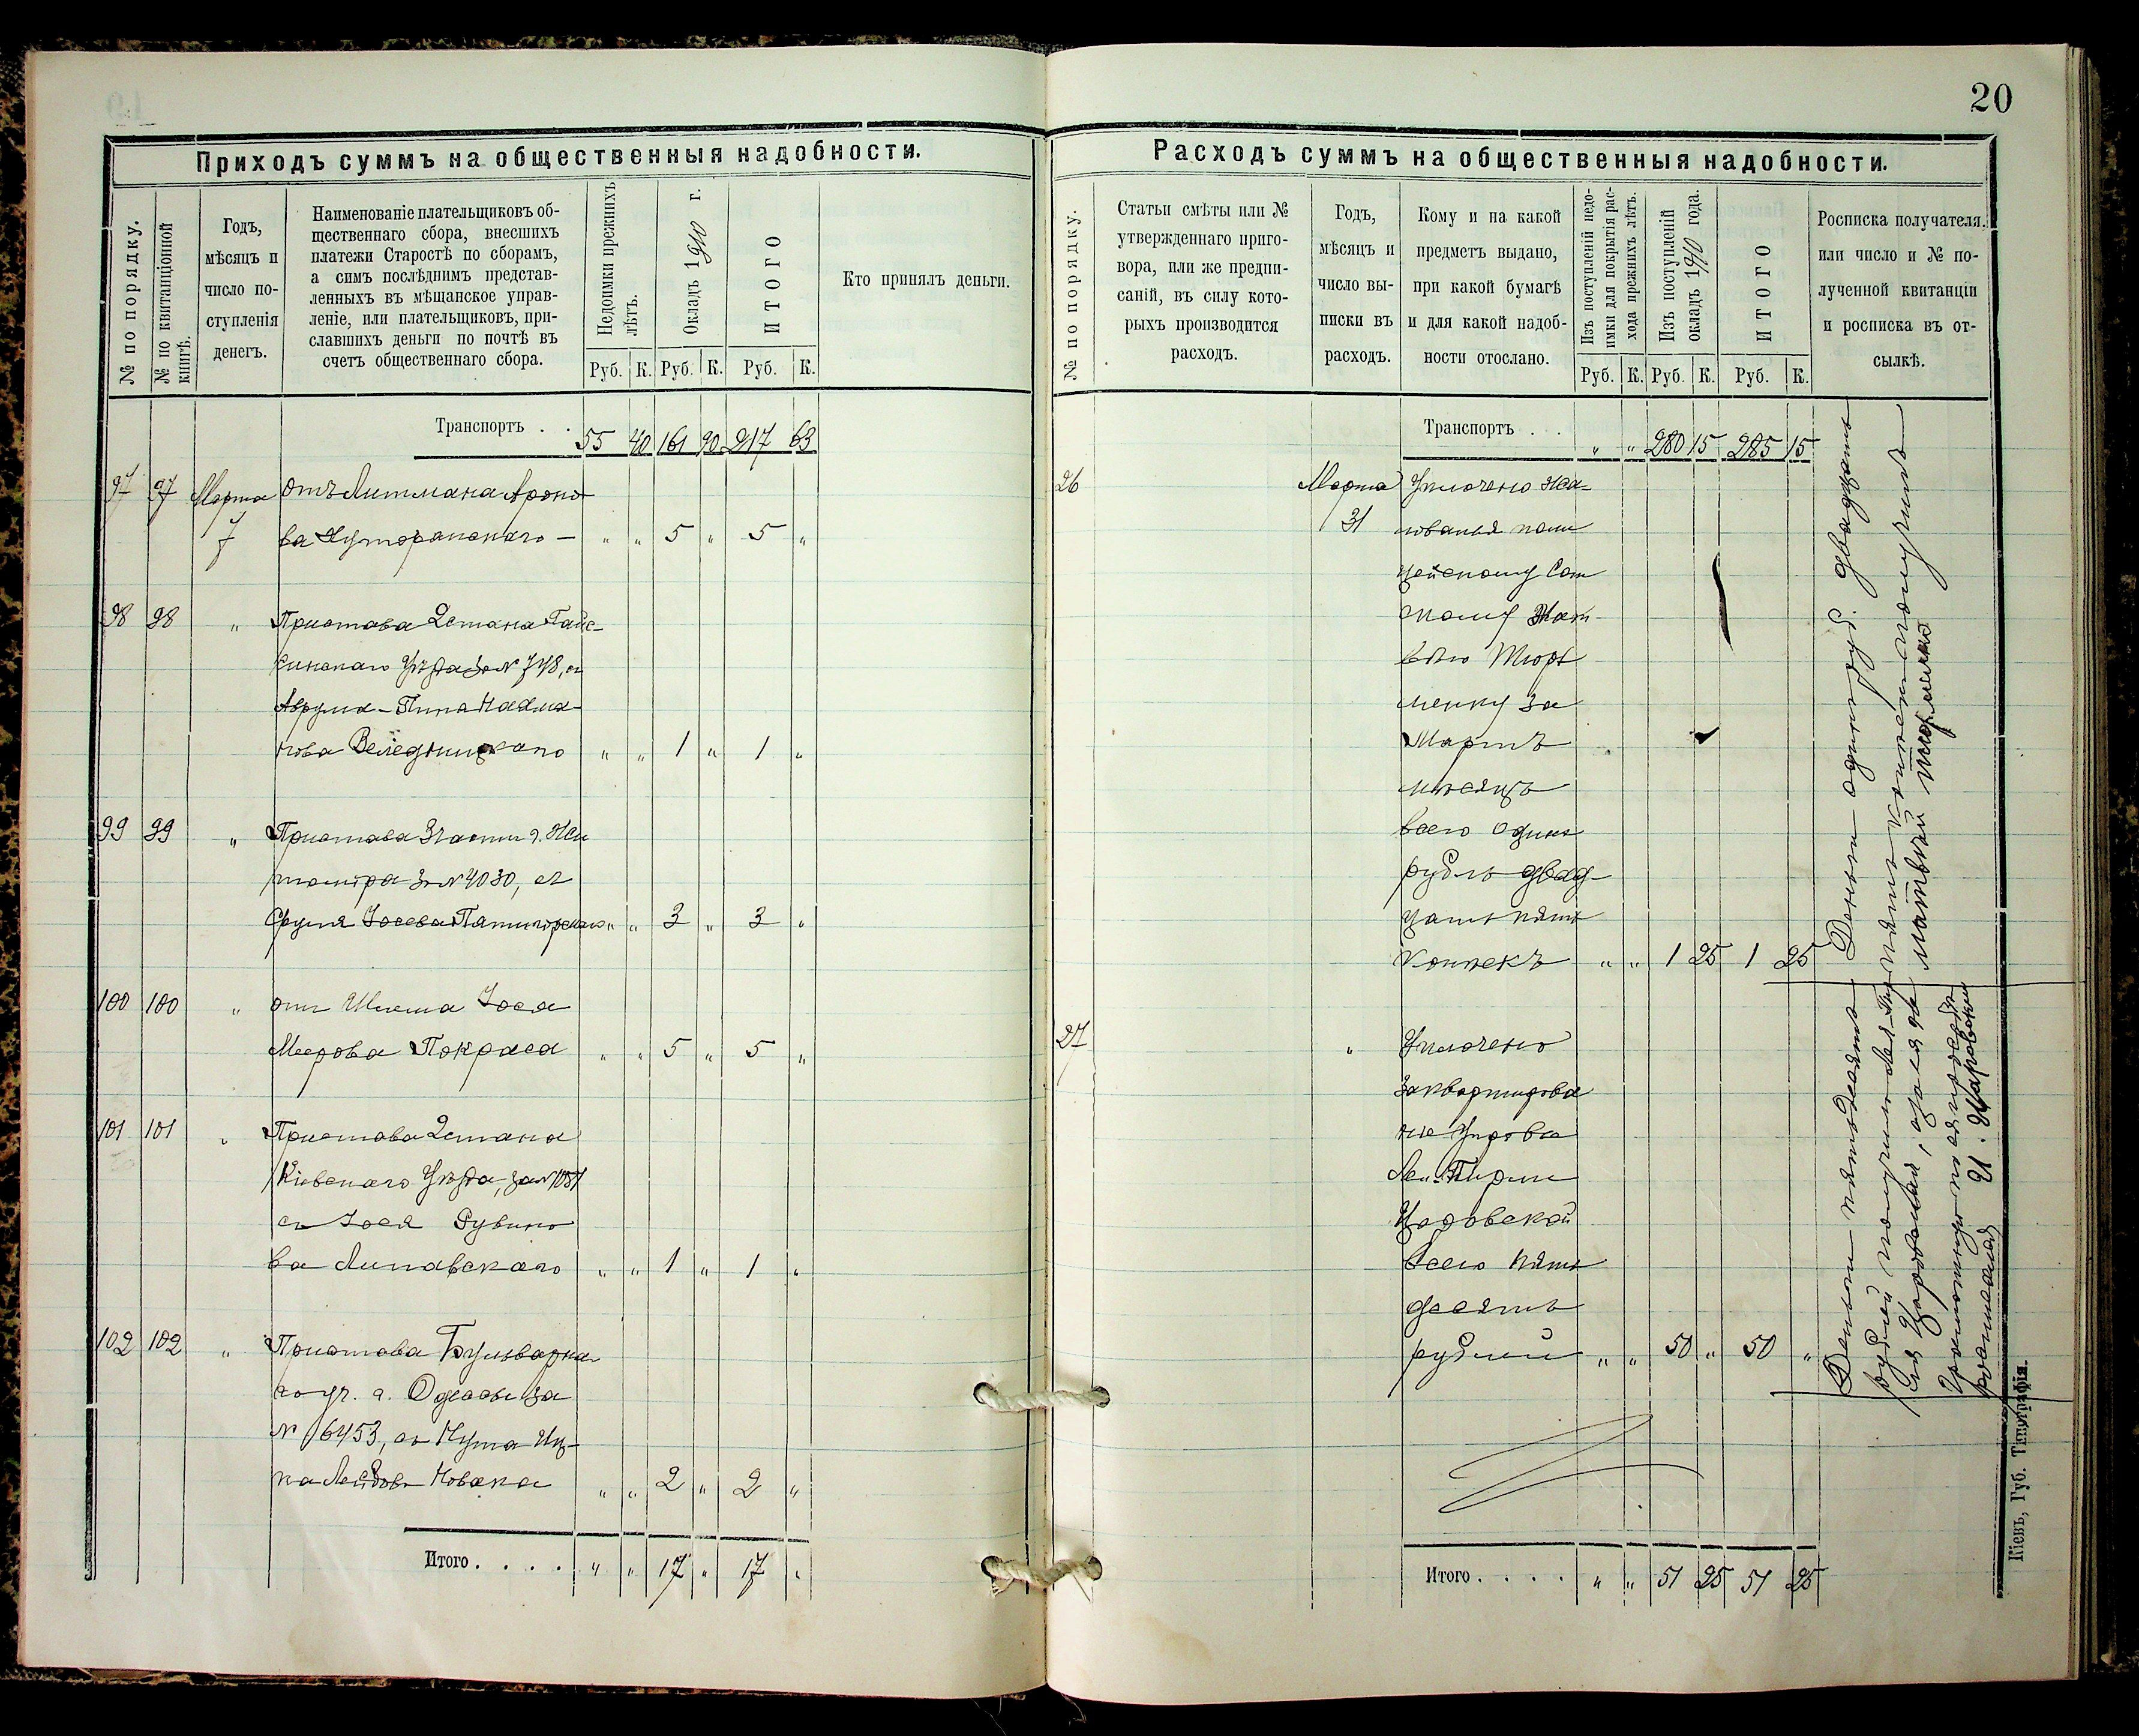 20
Приходъ суммъ на общественныя надобности.
№ по порядку.
№ по квитанціонной книгѣ.
Годъ,
мѣсяцъ и
число по-
ступленія
денегъ.
Наименованіе плательщиковъ об-
щественнаго сбора, внесшихъ
платежи Старостѣ по сборамъ,
а симъ послѣднимъ представ-
ленныхъ въ мѣщанское управ-
леніе, или плательщиковъ, при-
славшихъ деньги по почтѣ въ
счетъ общественнаго сбора.
Недоимки прежнихъ лѣтъ.
Окладъ 1910 г.
ИТОГО
Кто принялъ деньги.
Руб. К. Руб. К. Руб. К.
Транспортъ . . 55 40 161 90 217 63
97 97 Марта отъ ЛитманаАроно-
7 ва Куторанскаго — " " 5 " 5 "
98 98 " Пристава 2 стана Гайс-
синскаго Уѣзда за № 748, съ
Аврума-Пинка Нахма-
нова Веледницкаго " " 1 " 1 "
99 99 " Пристава 3 части г. Жи
томіра за № 4030, съ
Фруля Іосева Пятигорскаго " " 3 " 3 "
100 100 " отъ Шлема Іося
Меерова Покраса " " 5 " 5 "
101 101 " Пристава 2 стана
Кіевскаго Уѣзда, за № 1081
съ Іося Рувино
ва Липавскаго " " 1 " 1 "
102 102 " Пристава Бульварна
го уч. г. Одессы за
№ 16453, съ Нута Иц-
ка Лейбова Новака " " 2 " 2 "
Итого . . . . " " 17 " 17 "
Расходъ суммъ на общественныя надобности.
№ по порядку.
Статьи смѣты или №
утвержденнаго приго-
вора, или же предпи-
саній, въ силу кото-
рыхъ производится
расходъ.
Годъ,
мѣсяцъ и
число вы-
писки въ
расходъ.
Кому и на какой
предметъ выдано,
при какой бумагѣ
и для какой надоб-
ности отослано.
Изъ поступленій недо-
имки для покрытія рас-
хода прежнихъ лѣтъ.
Изъ поступленій
окладъ 1910 года.
ИТОГО
Росписка получателя.
или число и № по-
лученной квитанціи
и росписка въ от-
сылкѣ.
Руб. К. Руб. К. Руб. К.
Транспортъ . . . " " 280 15 285 15
26 Марта Уплочено жа-
31 лованья поли
цейскому Сот
скому Мат-
вѣю Тюрі
менку за
Мартъ
мѣсяцъ
всего одинъ
рубль двад-
цать пять
копѣекъ " " 1 25 1 25
Деньги один руб. двадцать
пять копѣекъ получилъ
матвѣй тюрменко
27 " Уплочено
за квартирова
ніе Управы
Леи-Пирли
Царовской
всего пять
десятъ
рублей " " 50 " 50 "
Деньги пятьдесятъ
рублей получила Лея-Пир
ля Царовская, а за нея не
грамотную по ея просьбѣ
росписался И. Царовский
Итого . . . . " " 51 25 51 25
Кіевъ, Губ. Типографія.